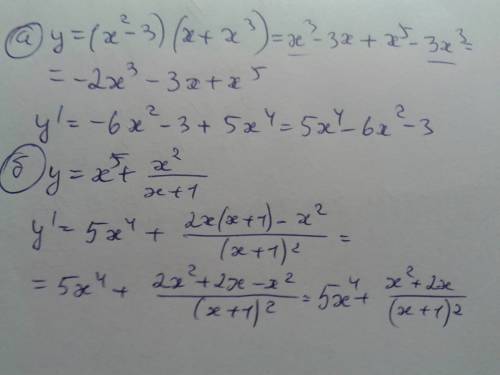 а) y = (x² - 3)(x + x³) = x³ - 3x + x⁵ - 3x³ =
= -2x³ - 3x + x⁵
y' = -6x² - 3 + 5x⁴ = 5x⁴ - 6x² - 3
б) y = x⁵ + x²/(x+1)
y' = 5x⁴ + (2x(x+1) - x²)/(x+1)² =
= 5x⁴ + (2x² + 2x - x²)/(x+1)² = 5x⁴ + (x² + 2x)/(x+1)²